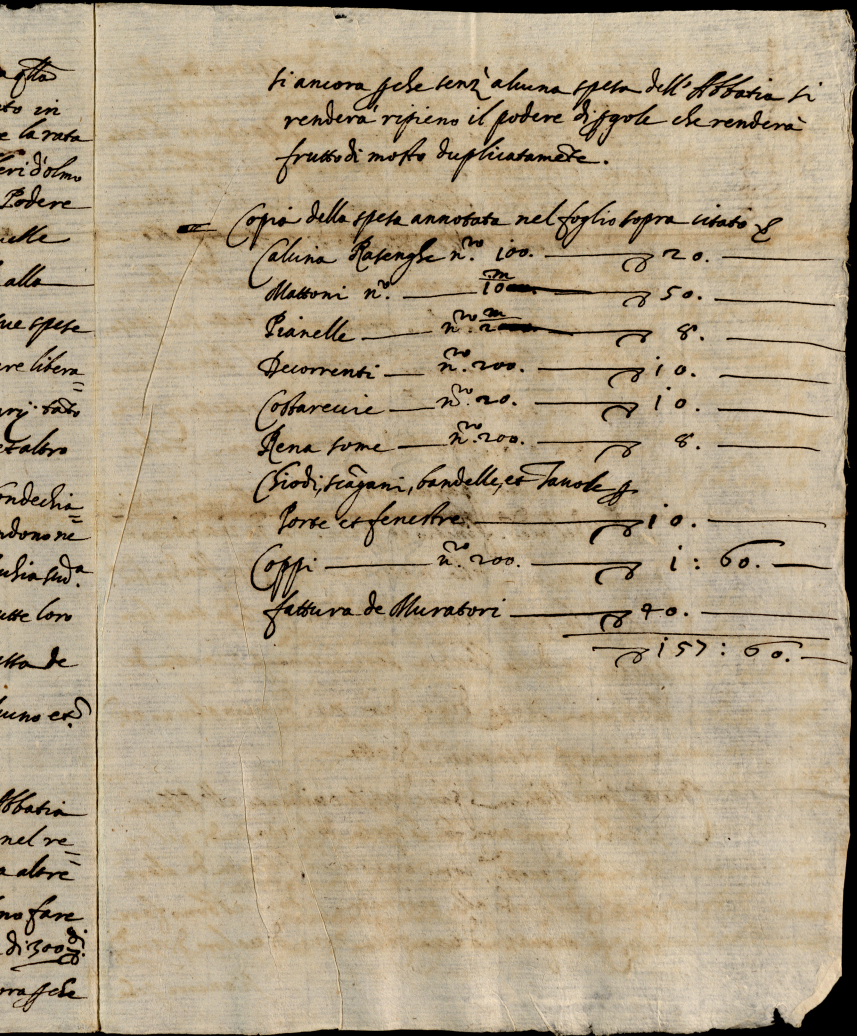 aqlla
to in
e la rata
eri d'olmo
Podere
uelle
alla
ue spese
re libera=
et altro
ondechia=
ndono ne
utte loro
tta de
uno et
Abbatia
nel re=
a altre
no fare
di 300
rra che
si ancora che senz'alcuna spesa dell'Abbatia si
renderà ripieno il podere di che renderà
frutto di mosto duplicatamẽte.
Copia della spesa annotata nel foglio sopra citato
Calcina n.ro 100. 20.
Mattoni n.ro 10m 50.
Pianelle n.ro 2m 8.
Decorrenti n.ro 200. 10.
n.ro 20. 10.
Rena some n.ro 200. 8.
Chiodi, bandelle, et Tauole p
Porte et fenestre 10.
Coppi n.ro 200. 1 : 60.
fattura de Muratori 40.
157 : 60.